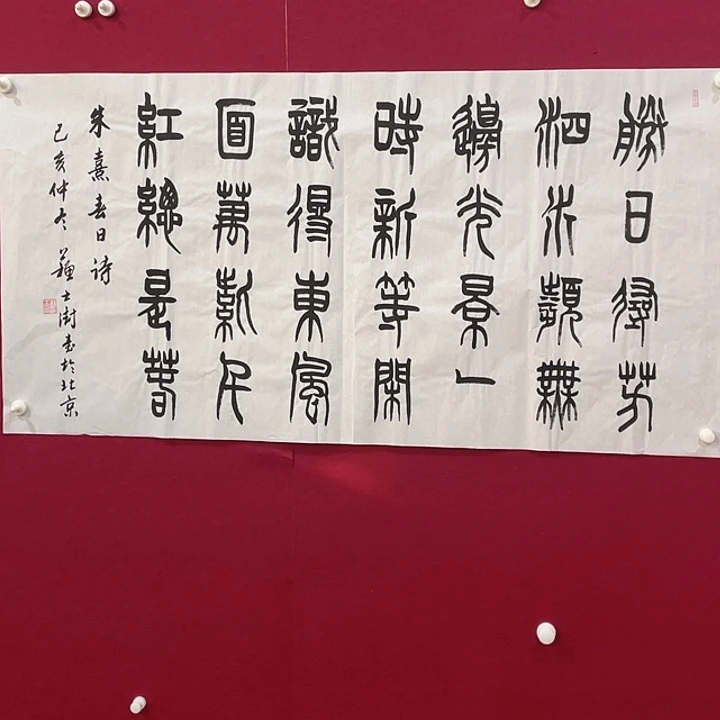 勝日尋芳
泗水瀕無
邊光景一
時新等閑
識得東風
面萬紫千
紅總是春
朱熹春日詩
己亥仲冬 蘇士澍書於北京